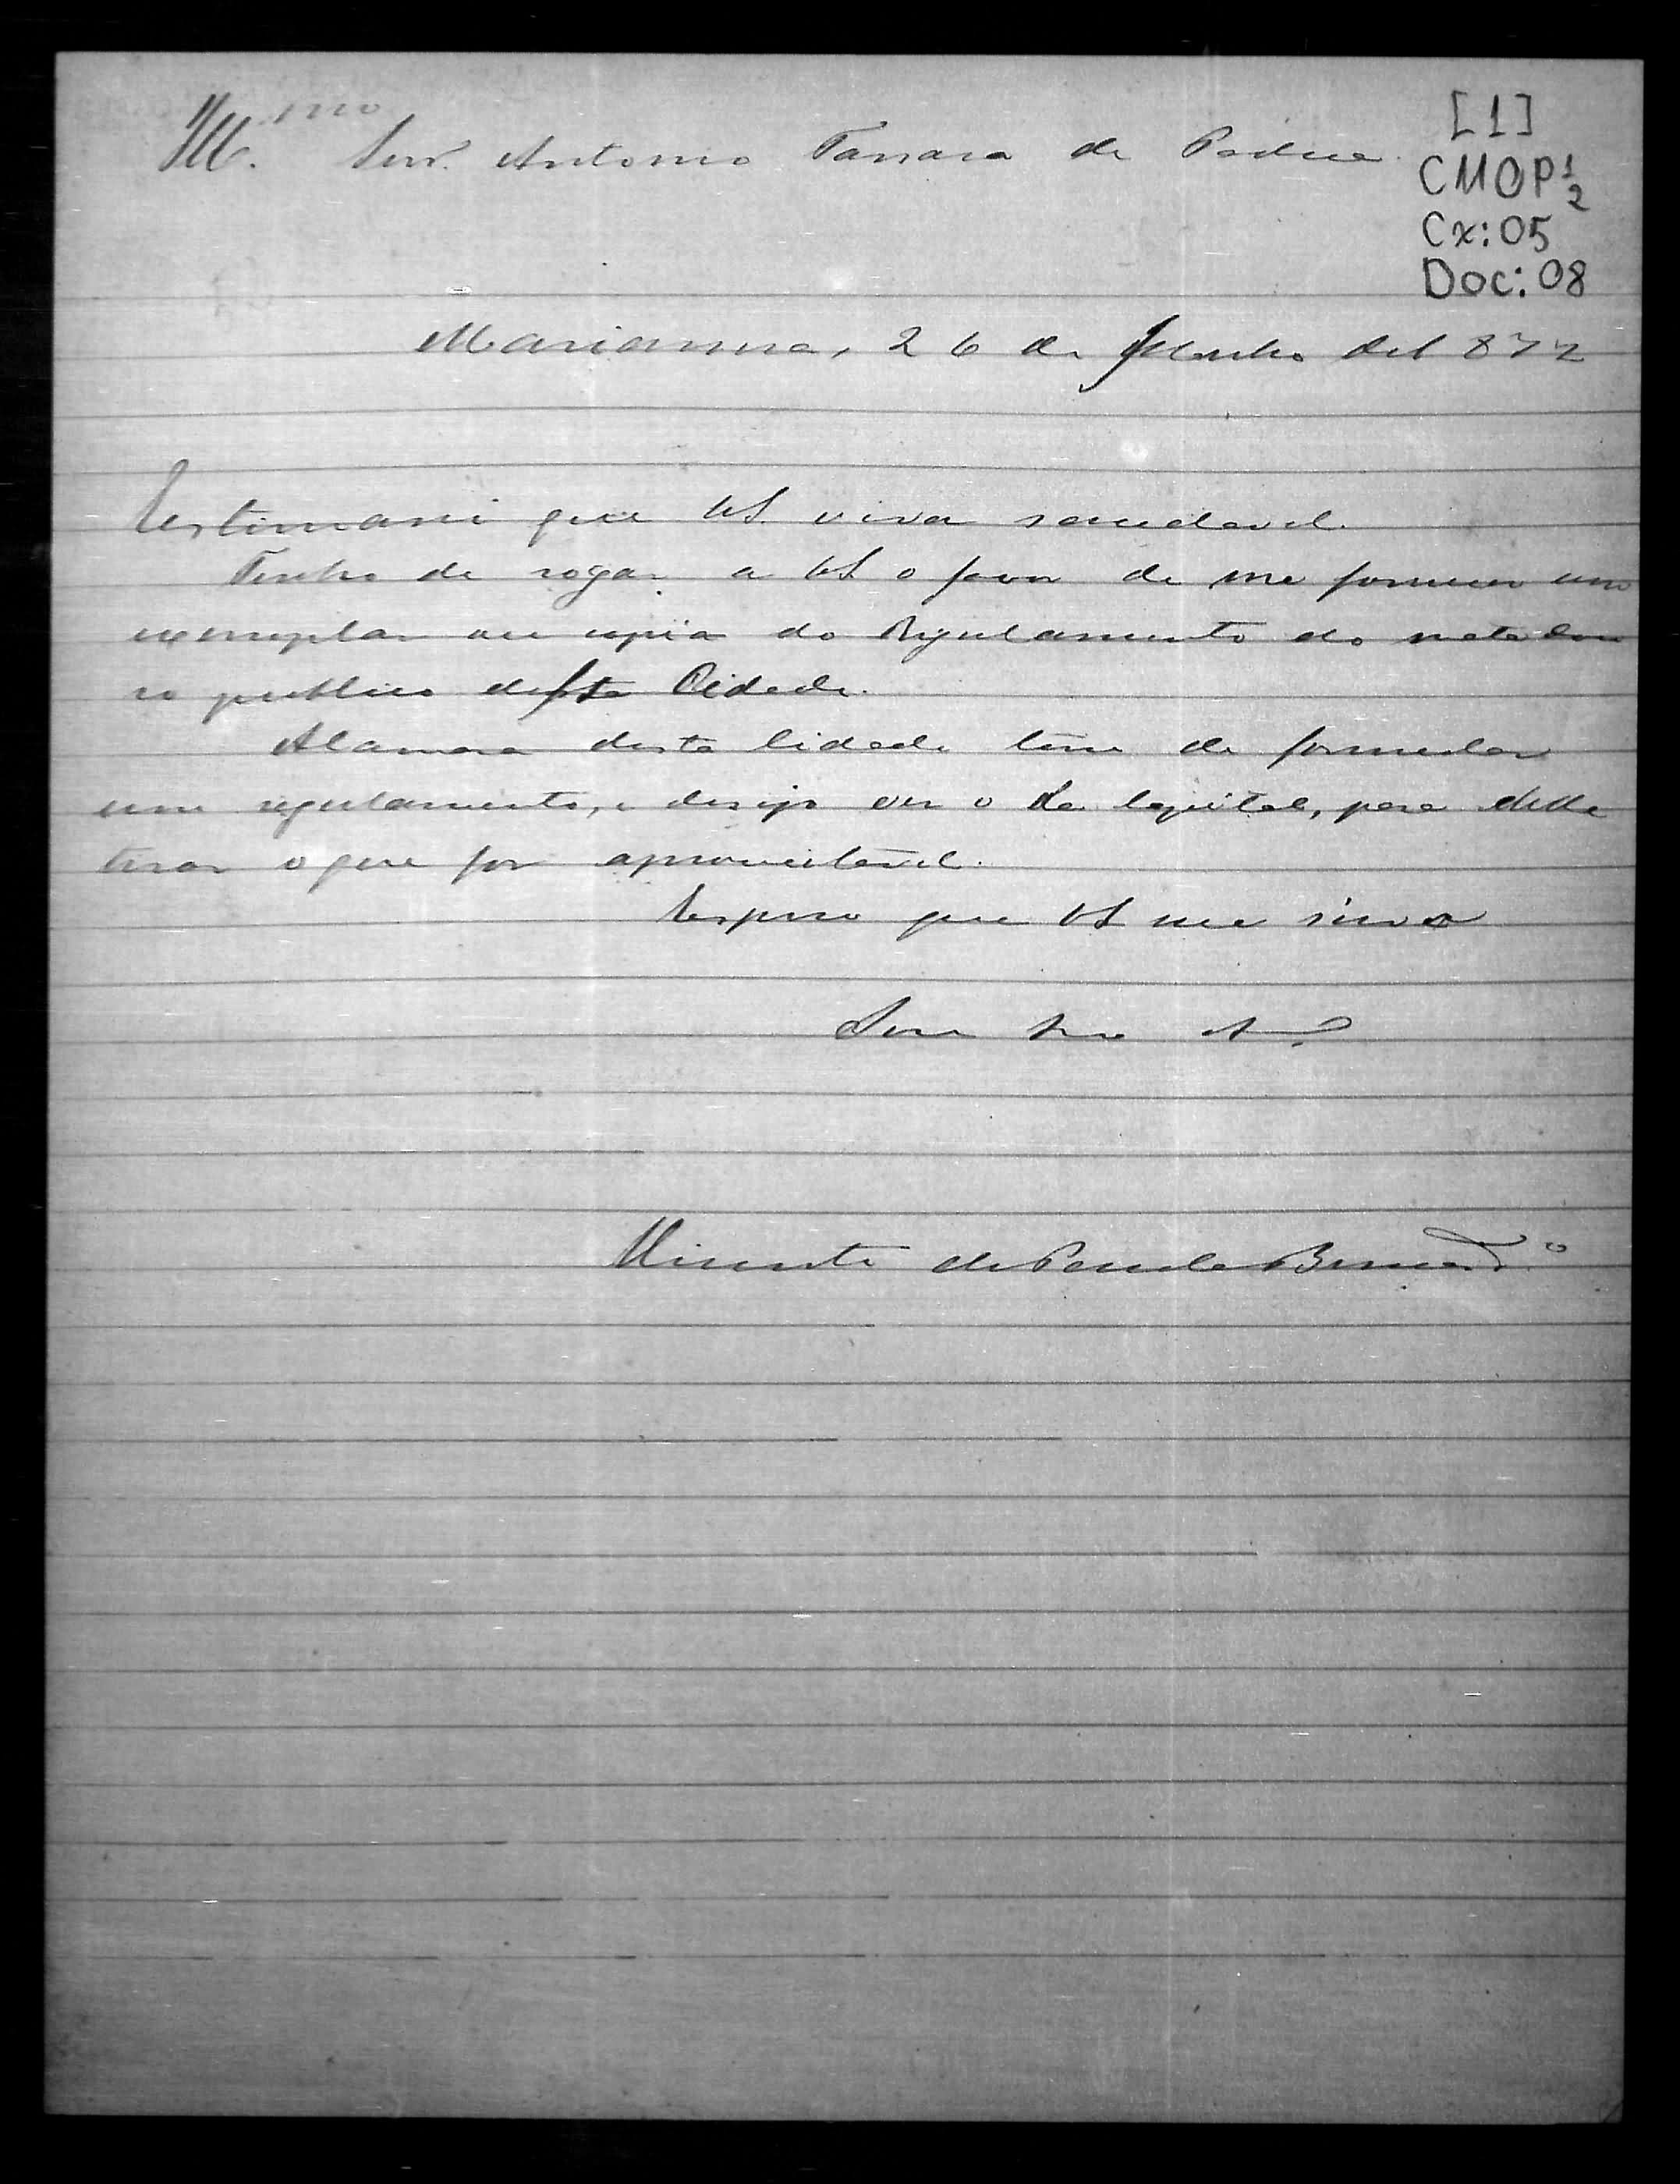 Ill.mo Snr. Antonio de Padua
[1]
CMOP 1/2
Cx: 05
Doc: 08
Marianna, 26 de Junho de 1877
Estimarei que VS. viva saudavel.
Tenho de rogar a VS o favor de me fornecer um
exemplar ou copia do Regulamento do matadou
ro publico desta Cidade.
A Camara desta Cidade tem de formular
um regulamento, e desejo ver o da Capital, para delle
tirar o que for aproveitavel.
Espero que VS me sirva
Sou
Vicente de Paula Bernardo